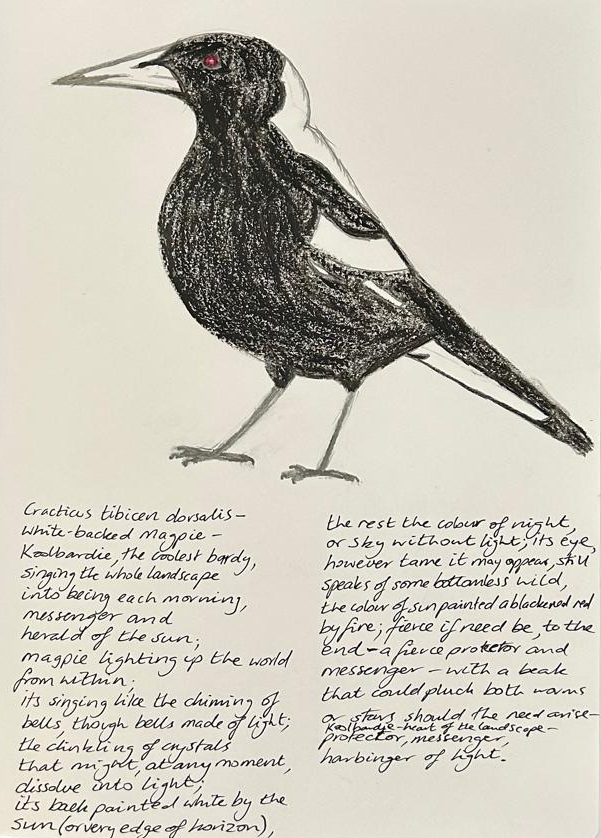 Cracticus tibicen dorsalis-
White-backed Magpie-
Koolbardie, the coolest bardy,
singing the whole landscape
into being each morning,
messenger and
herald of the sun;
magpie lighting up the world
from within;
its singing like the chiming of
bells, though bells made of light;
the clinkling of crystals
that might, at any moment,
dissolve into light;
its back painted white by the
sun (or very edge of horizon),
the rest the colour of night,
or sky without light; its eye,
however tame it may appear, still
speaks of some bottomless wild,
the colour of sun painted a blackened red
by fire; fierce if need be, to the
end - a fierce protector and
messenger - with a beak
that could pluck both worms
or stars should the need arise-
Koolbardie-heart of the landscape-
protector, messenger,
harbinger of light.